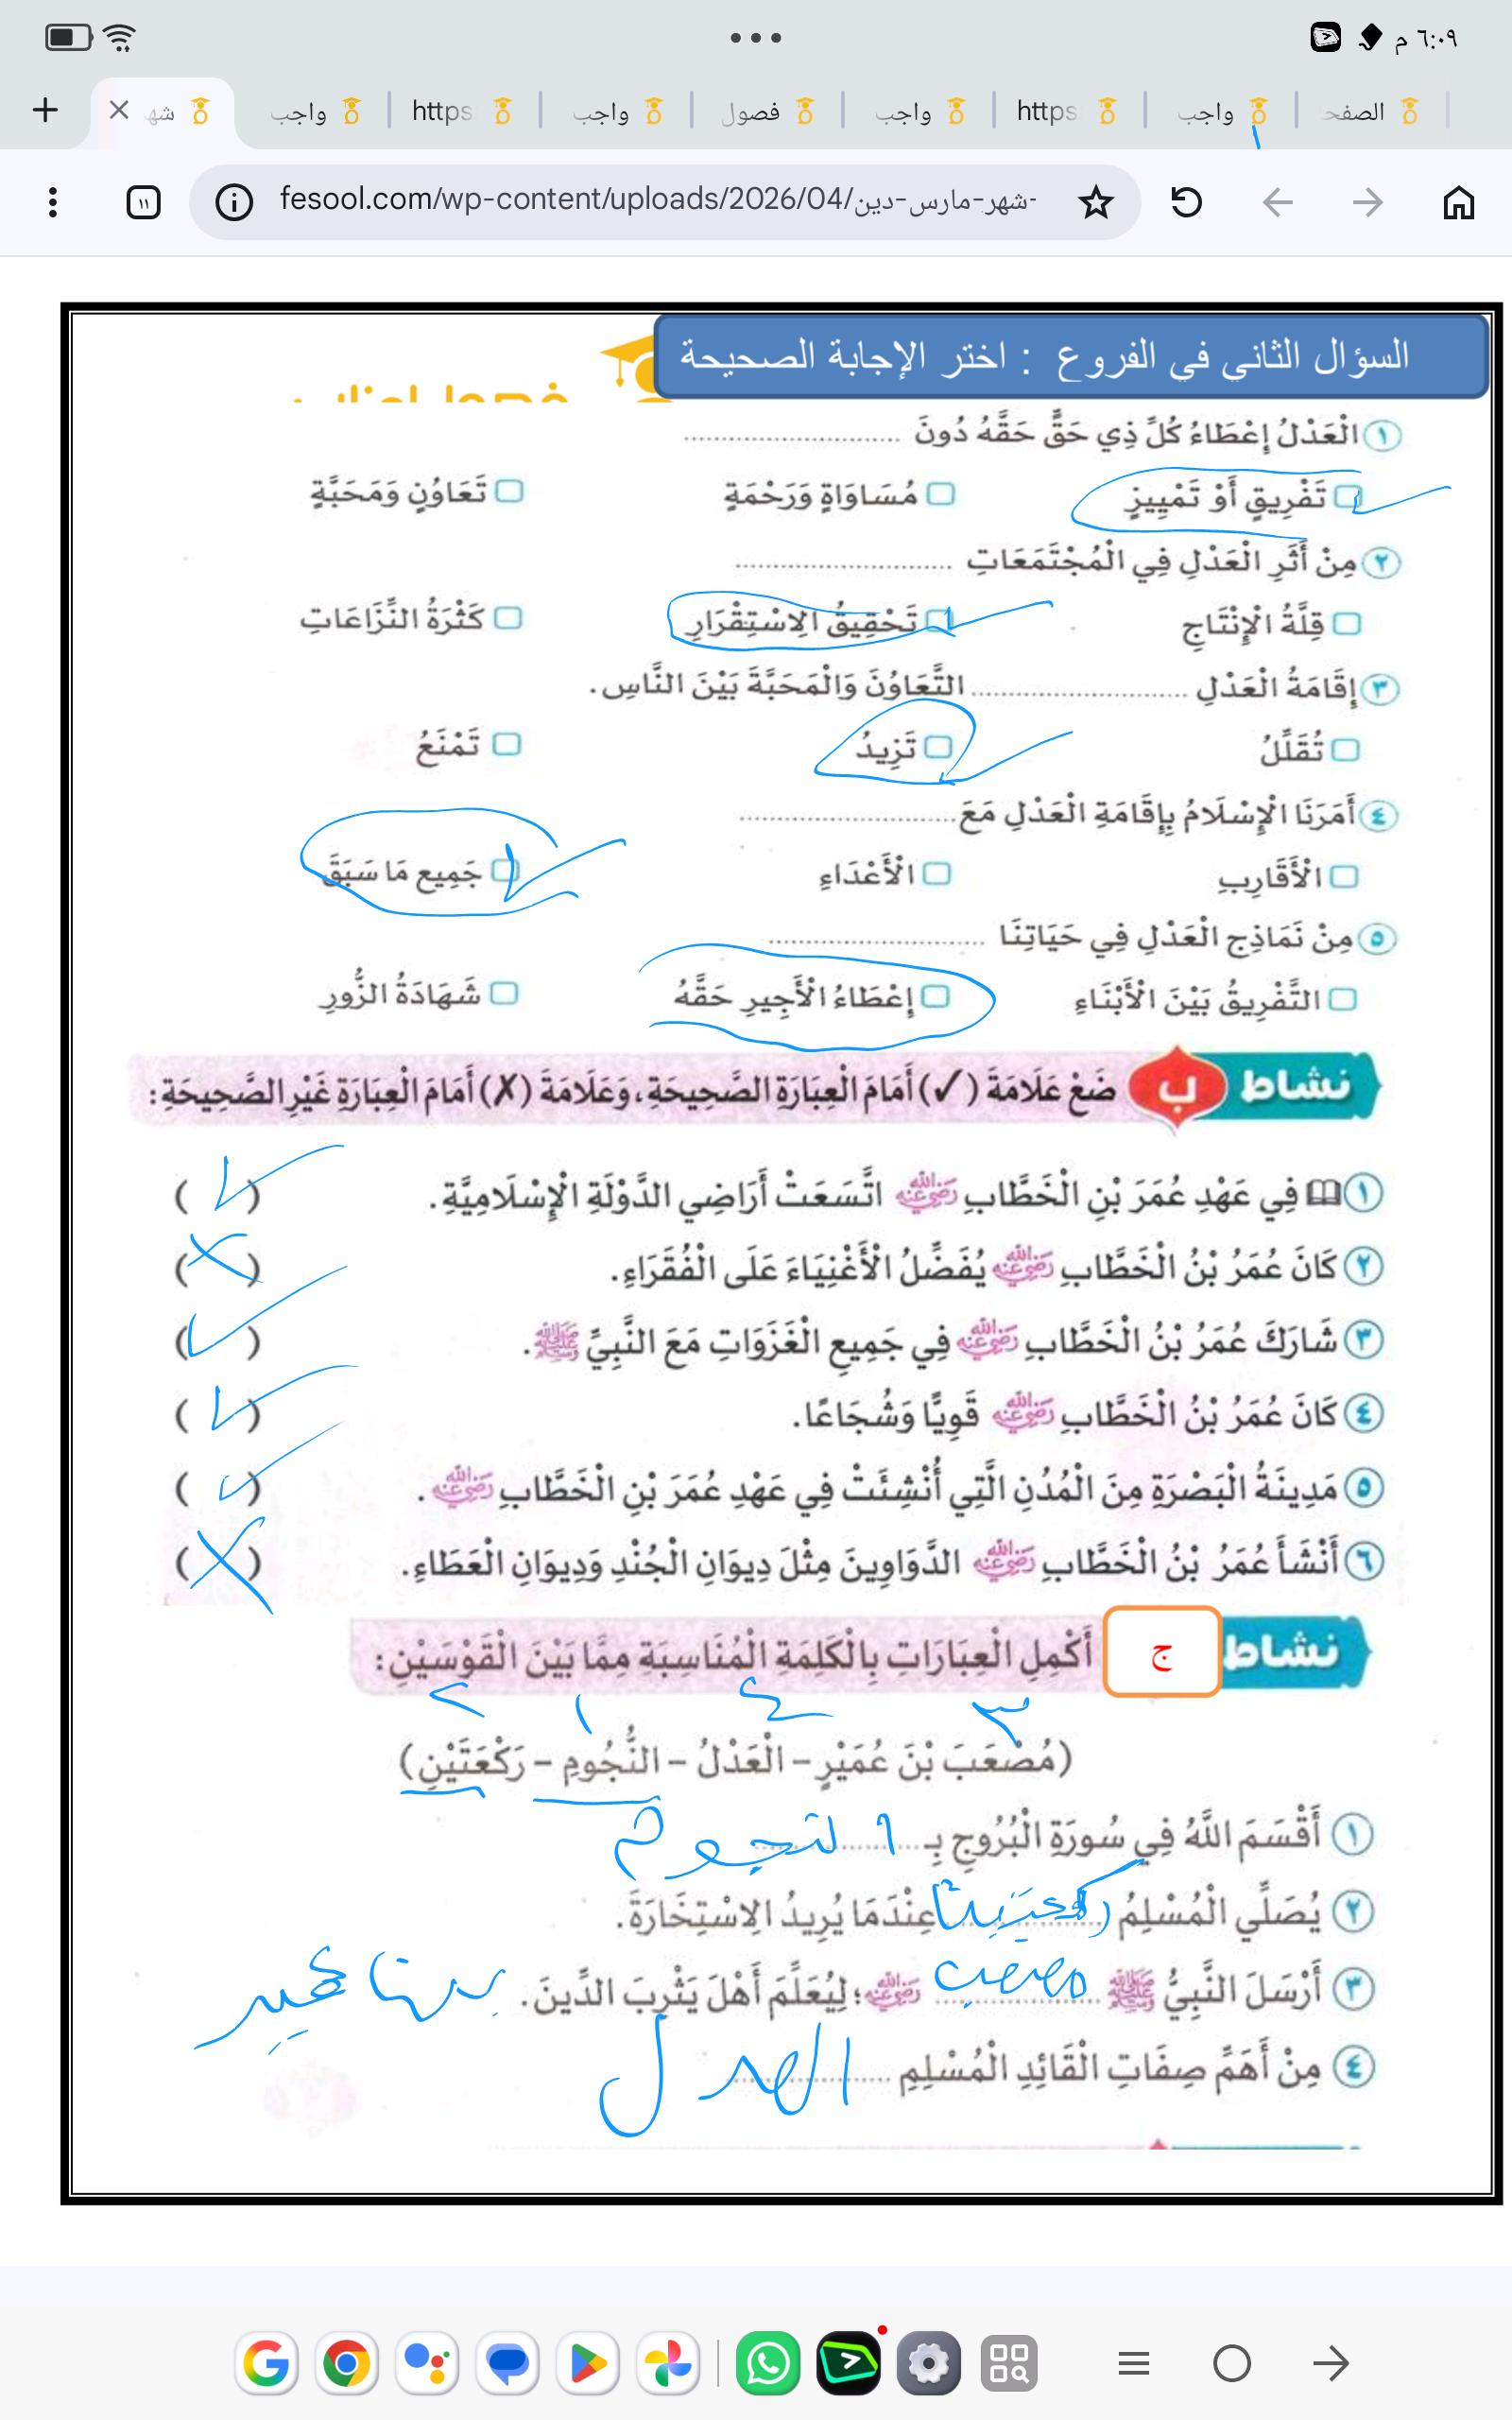 ٦:٠٩ م
شه
واجب
https
واجب
فصول
واجب
https
واجب
الصفح
١١
fesool.com/wp-content/uploads/2026/04/شهر-مارس-دين-
السؤال الثاني في الفروع : اختر الإجابة الصحيحة
١ الْعَدْلُ إِعْطَاءُ كُلِّ ذِي حَقٍّ حَقَّهُ دُونَ ........................
تَفْرِيقٍ أَوْ تَمْيِيزٍ مُسَاوَاةٍ وَرَحْمَةٍ تَعَاوُنٍ وَمَحَبَّةٍ
٢ مِنْ أَثَرِ الْعَدْلِ فِي الْمُجْتَمَعَاتِ ........................
قِلَّةُ الْإِنْتَاجِ تَحْقِيقُ الِاسْتِقْرَارِ كَثْرَةُ النِّزَاعَاتِ
٣ إِقَامَةُ الْعَدْلِ ........................ التَّعَاوُنَ وَالْمَحَبَّةَ بَيْنَ النَّاسِ.
تُقَلِّلُ تَزِيدُ تَمْنَعُ
٤ أَمَرَنَا الْإِسْلَامُ بِإِقَامَةِ الْعَدْلِ مَعَ ........................
الْأَقَارِبِ الْأَعْدَاءِ جَمِيعِ مَا سَبَقَ
٥ مِنْ نَمَاذِجِ الْعَدْلِ فِي حَيَاتِنَا ........................
التَّفْرِيقُ بَيْنَ الْأَبْنَاءِ إِعْطَاءُ الْأَجِيرِ حَقَّهُ شَهَادَةُ الزُّورِ
نشاط ب ضَعْ عَلَامَةَ (✓) أَمَامَ الْعِبَارَةِ الصَّحِيحَةِ، وَعَلَامَةَ (✗) أَمَامَ الْعِبَارَةِ غَيْرِ الصَّحِيحَةِ:
١ فِي عَهْدِ عُمَرَ بْنِ الْخَطَّابِ رضي الله عنه اتَّسَعَتْ أَرَاضِي الدَّوْلَةِ الْإِسْلَامِيَّةِ. (✓)
٢ كَانَ عُمَرُ بْنُ الْخَطَّابِ رضي الله عنه يُفَضِّلُ الْأَغْنِيَاءَ عَلَى الْفُقَرَاءِ. (✗)
٣ شَارَكَ عُمَرُ بْنُ الْخَطَّابِ رضي الله عنه فِي جَمِيعِ الْغَزَوَاتِ مَعَ النَّبِيِّ ﷺ. (✓)
٤ كَانَ عُمَرُ بْنُ الْخَطَّابِ رضي الله عنه قَوِيًّا وَشُجَاعًا. (✓)
٥ مَدِينَةُ الْبَصْرَةِ مِنَ الْمُدُنِ الَّتِي أُنْشِئَتْ فِي عَهْدِ عُمَرَ بْنِ الْخَطَّابِ رضي الله عنه. (✓)
٦ أَنْشَأَ عُمَرُ بْنُ الْخَطَّابِ رضي الله عنه الدَّوَاوِينَ مِثْلَ دِيوَانِ الْجُنْدِ وَدِيوَانِ الْعَطَاءِ. (✗)
نشاط ج أَكْمِلِ الْعِبَارَاتِ بِالْكَلِمَةِ الْمُنَاسِبَةِ مِمَّا بَيْنَ الْقَوْسَيْنِ:
٣ ٤ ١ ٢
(مُصْعَبَ بْنَ عُمَيْرٍ – الْعَدْلُ – النُّجُومِ – رَكْعَتَيْنِ)
١ أَقْسَمَ اللَّهُ فِي سُورَةِ الْبُرُوجِ بِـ النجوم
٢ يُصَلِّي الْمُسْلِمُ ركعتين عِنْدَمَا يُرِيدُ الِاسْتِخَارَةَ.
٣ أَرْسَلَ النَّبِيُّ ﷺ مصعب رضي الله عنه؛ لِيُعَلِّمَ أَهْلَ يَثْرِبَ الدِّينَ. بن عمير
٤ مِنْ أَهَمِّ صِفَاتِ الْقَائِدِ الْمُسْلِمِ العدل